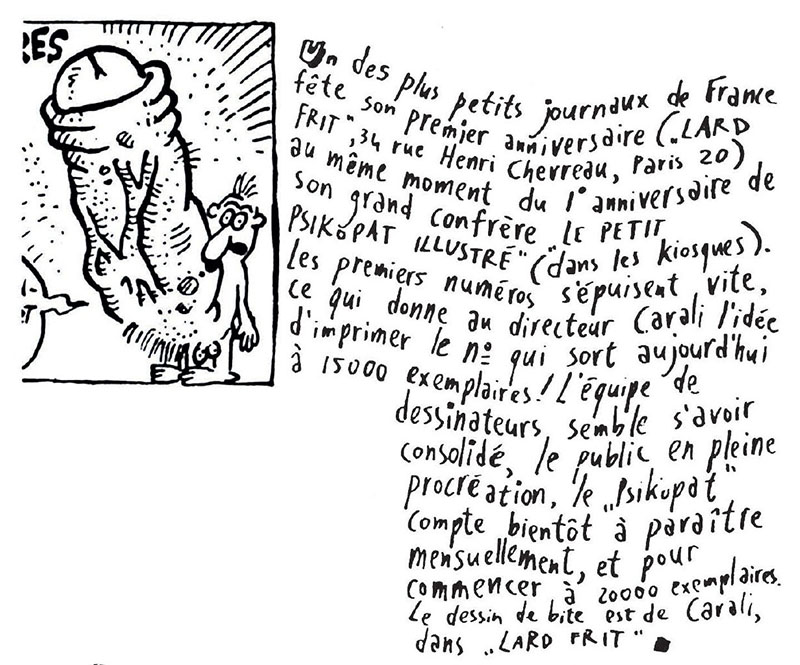 RES
Un des plus petits journaux de France
fête son premier anniversaire („LARD
FRIT", 34 rue Henri Chevreau, Paris 20)
au même moment du 1° anniversaire de
son grand confrère „LE PETIT
PSIKOPAT ILLUSTRÉ" (dans les kiosques).
Les premiers numéros s'épuisent vite,
ce qui donne au directeur Carali l'idée
d'imprimer le nº qui sort aujourd'hui
à 15000 exemplaires! L'équipe de
dessinateurs semble s'avoir
consolidé, le public en pleine
procréation, le „Psikopat"
compte bientôt à paraître
mensuellement, et pour
commencer à 20000 exemplaires.
Le dessin de bite est de Carali,
dans „LARD FRIT"